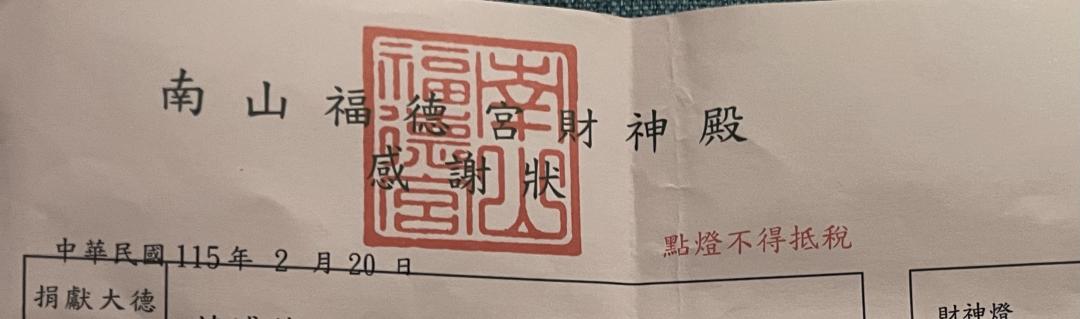 南山福德宮財神殿
感謝狀
南山福德宮
點燈不得抵稅
中華民國115年2月20日
捐獻大德
財神燈